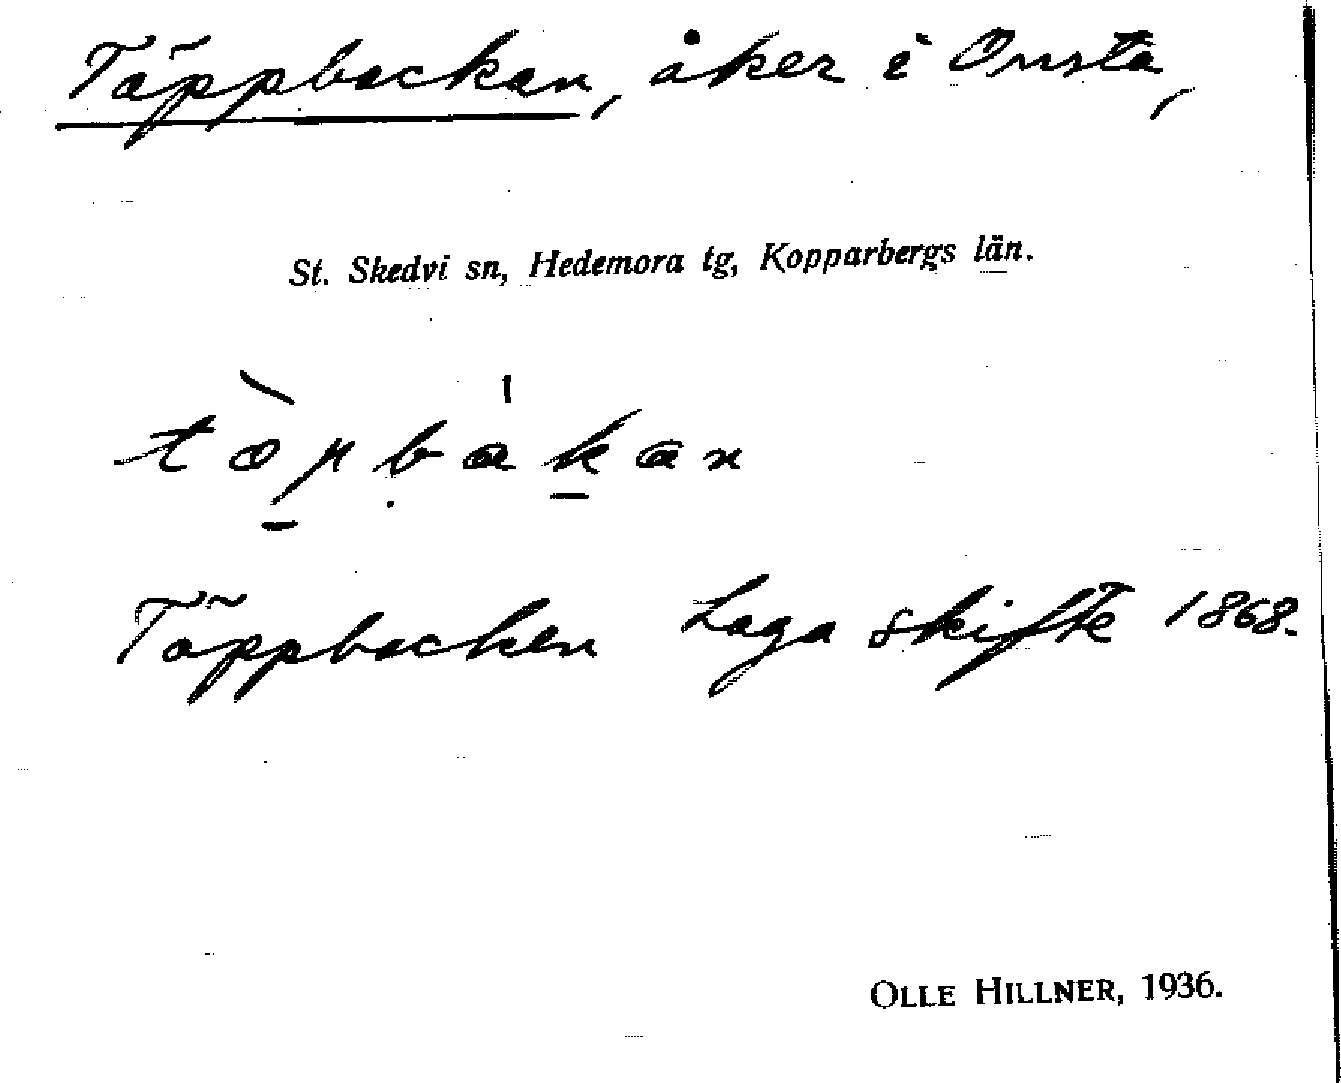 Täppbackan, åker i Onsta,
St. Skedvi sn, Hedemora tg, Kopparbergs län.
Täppbacken Laga skifte 1868.
OLLE HILLNER, 1936.